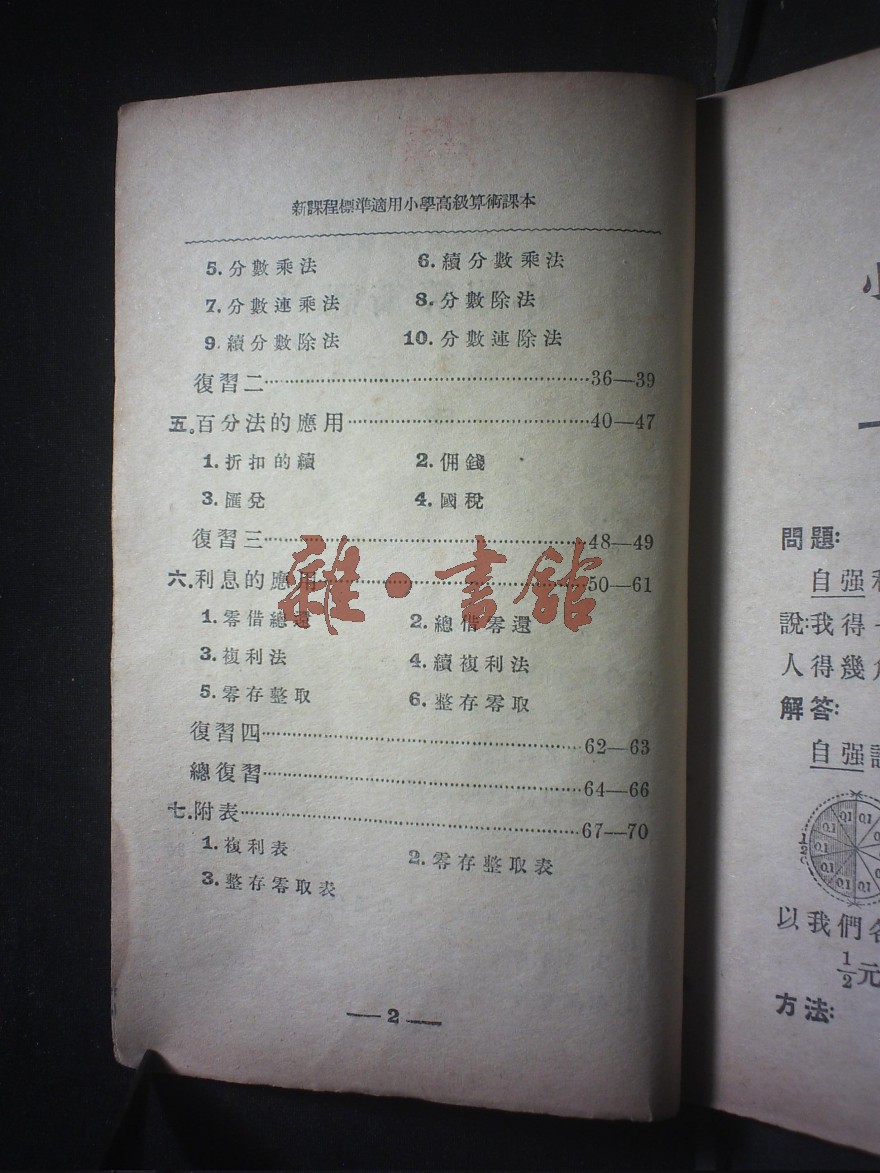 新課程標準適用小學高級算術課本
5. 分數乘法 6. 續分數乘法
7. 分數連乘法 8. 分數除法
9. 續分數除法 10. 分數連除法
復習二……36—39
五。百分法的應用……40—47
1. 折扣的續 2. 佣錢
3. 匯兌 4. 國稅
復習三……48—49
六.利息的應用……50—61
1. 零借總還 2. 總借零還
3. 複利法 4. 續複利法
5. 零存整取 6. 整存零取
復習四……62—63
總復習……64—66
七.附表……67—70
1. 複利表 2. 零存整取表
3. 整存零取表
—2—
雜·書館
問題:
自强
說:我得
人得幾
解答:
自强
0.1 0.1 0.1 0.1 0.1 0.1 0.1 0.1
以我們
1/2元
方法: